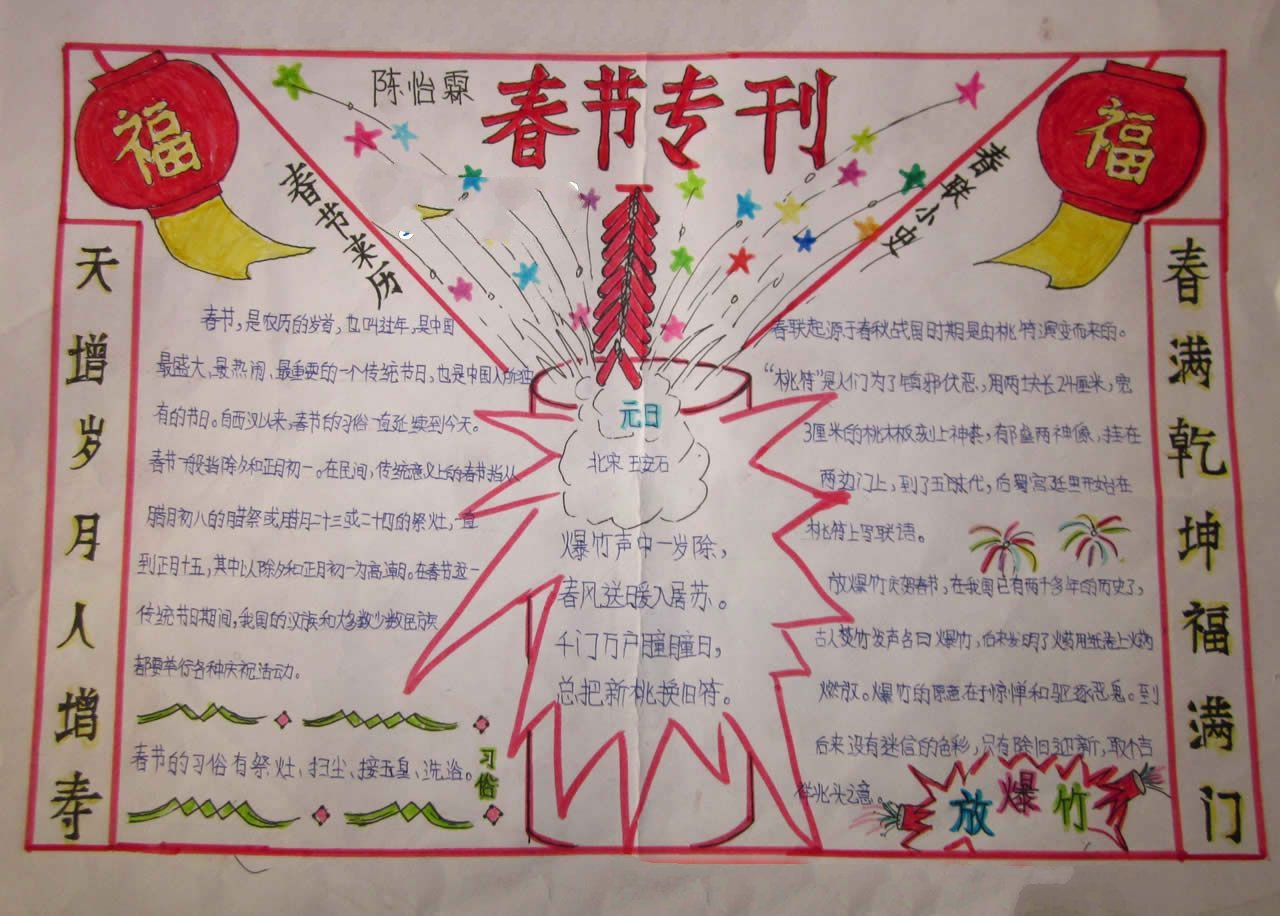 陈怡霖
春节专刊
福
福
天增岁月人增寿
春满乾坤福满门
春节来历
春节,是农历的岁首,也叫过年,是中国
最盛大、最热闹、最重要的一个传统节日,也是中国人所独
有的节日。自西汉以来,春节的习俗一直延续到今天。
春节一般指除夕和正月初一。在民间,传统意义上的春节指从
腊月初八的腊祭或腊月二十三或二十四的祭灶,一直
到正月十五,其中以除夕和正月初一为高潮。在春节这一
传统节日期间,我国的汉族和大多数少数民族
都要举行各种庆祝活动。
春节的习俗有祭灶、扫尘、接玉皇、洗浴。
习俗
元日
北宋 王安石
爆竹声中一岁除,
春风送暖入屠苏。
千门万户瞳瞳日,
总把新桃换旧符。
春联小史
春联起源于春秋战国时期是由桃符演变而来的。
“桃符”是人们为了镇邪伏恶,用两块长24厘米,宽
3厘米的桃木板刻上神荼,郁垒两神像,挂在
两边门上,到了五代时代,后蜀宫廷里开始在
桃符上写联语。
放爆竹庆贺春节,在我国已有两千多年的历史了,
古人焚竹发声名曰爆竹,后来发明了火药用纸卷上火药
燃放。爆竹的原意在于惊惮和驱逐恶鬼。到
后来没有迷信的色彩,只有除旧迎新,取个吉
祥兆头之意。
放爆竹